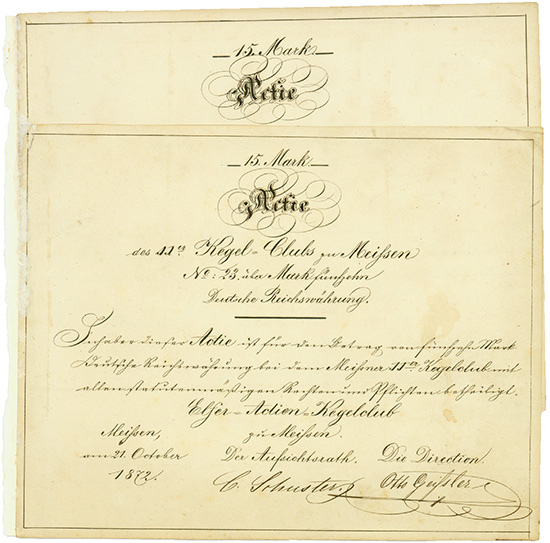 15. Mark.
Actie
15. Mark.
Actie
des 11er Kegel-Clubs zu Meißen
No: 23. über Mark fünfzehn
Deutsche Reichswährung.
Inhaber dieser Actie ist für den Betrag von fünfzehn Mark
Deutsche Reichswährung bei dem Meißner 11er Kegelclub mit
allen statutenmäßigen Rechten und Pflichten betheiligt.
Elfer-Actien-Kegelclub
zu Meißen.
Meißen,
am 21. October
1872.
Der Aufsichtsrath.
C. Schuster.
Die Direction.
Otto Geißler